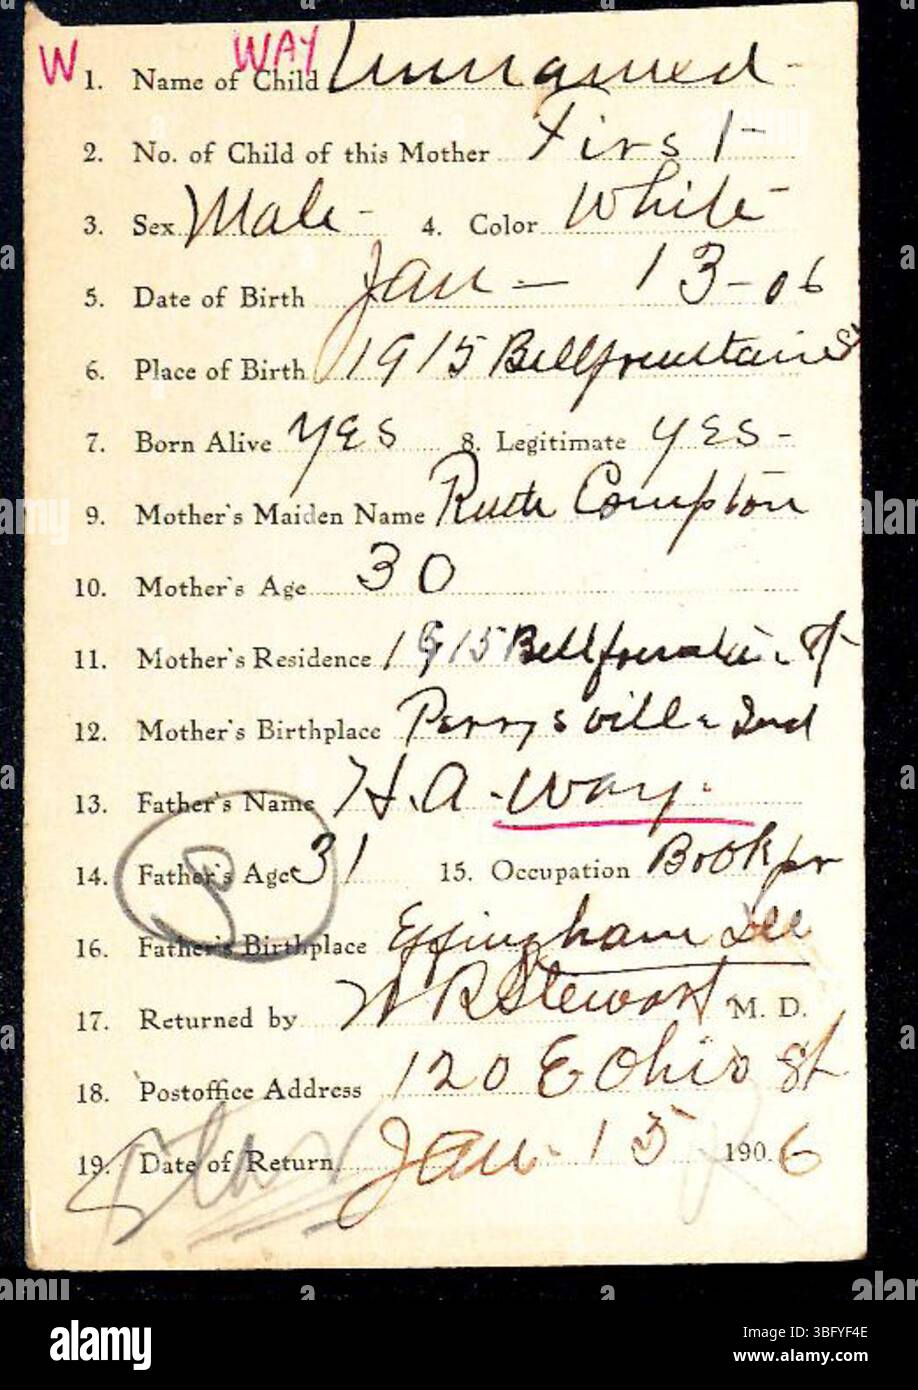 W WAY
1. Name of Child Unnamed -
2. No. of Child of this Mother First -
3. Sex Male - 4. Color White -
5. Date of Birth Jan — 13 - 06
6. Place of Birth 1915 Bellfountaine St
7. Born Alive YES 8. Legitimate YES -
9. Mother's Maiden Name Ruth Compton
10. Mother's Age 30
11. Mother's Residence 1915 Bellfountain St
12. Mother's Birthplace Perrysville Ind
13. Father's Name H. A. Way.
14. Father's Age 31 15. Occupation Bookpr
16. Father's Birthplace Effingham Ill
17. Returned by W R Stewart M. D.
18. Postoffice Address 120 E Ohio St
19. Date of Return Jan. 15 1906
alamy
Image ID: 3BFYF4E
www.alamy.com